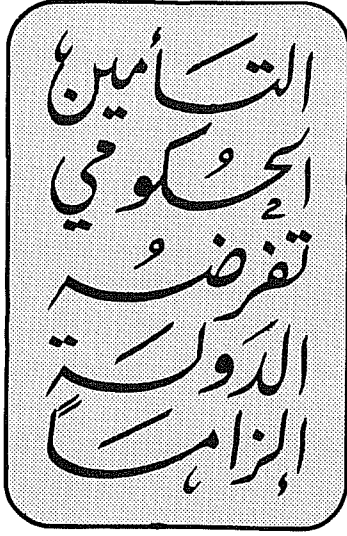 التأمين
الحكومي
تفرضه
الدولة
إلزاماً